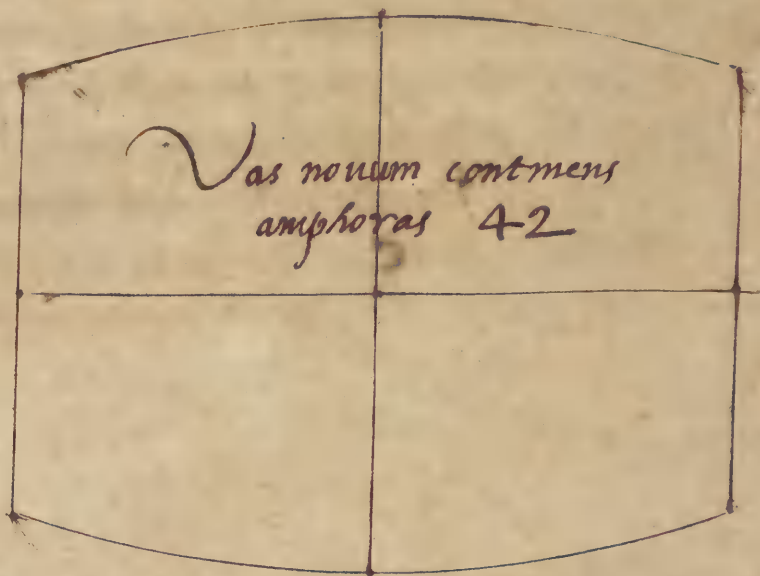 Vas nouum continens
amphoras 42